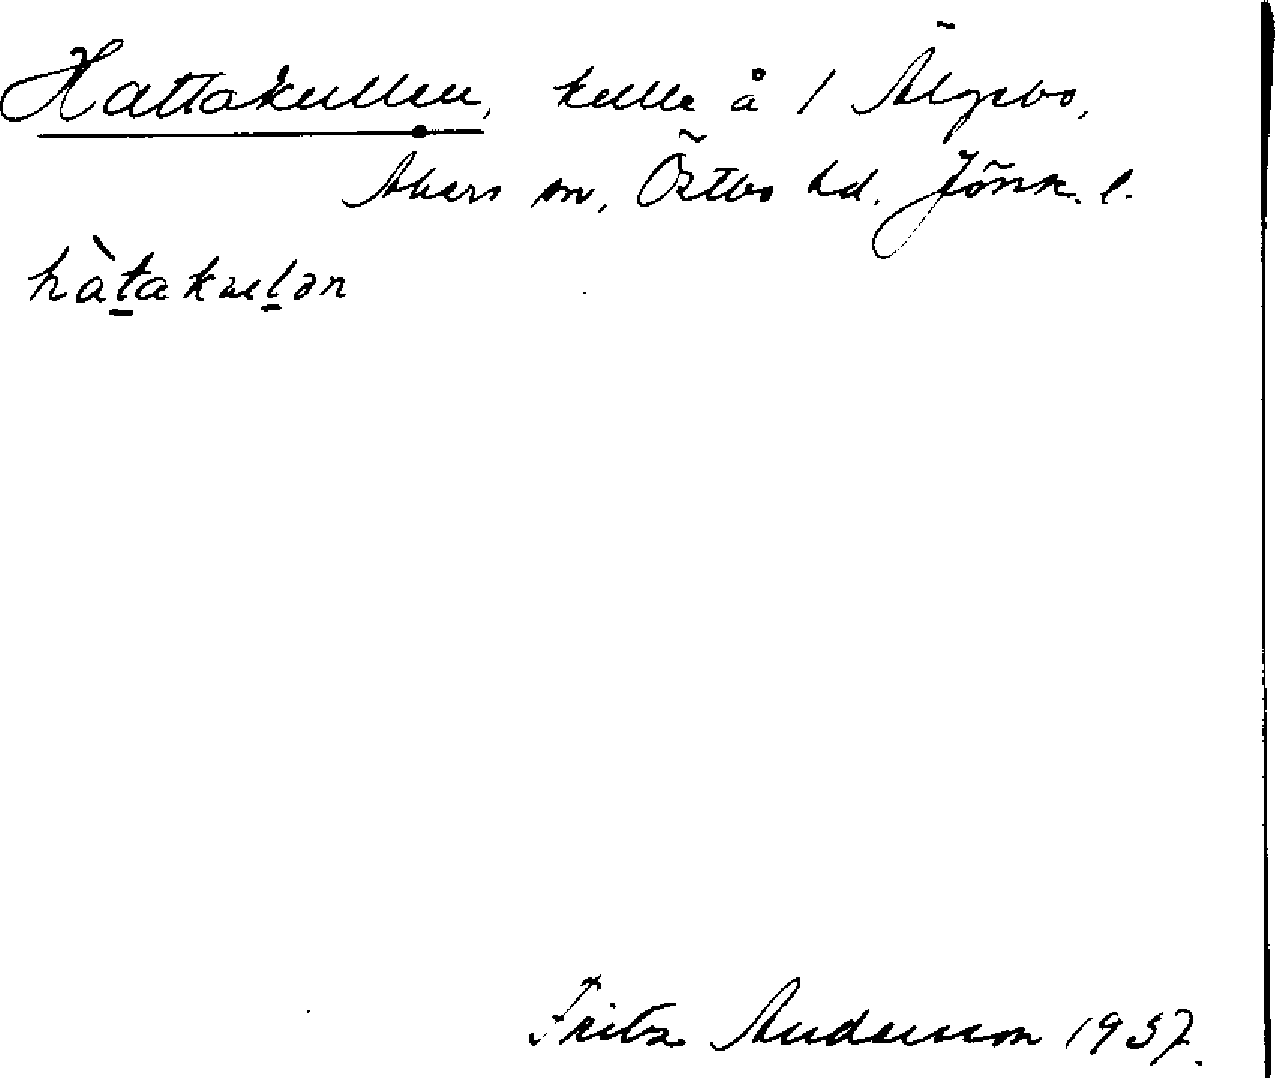 Hattakullen, kulle å 1 Älgebo,
Åkers sn, Östbo hd. Jönk. l.
hàtakulən
Fritz Andersson 1937.